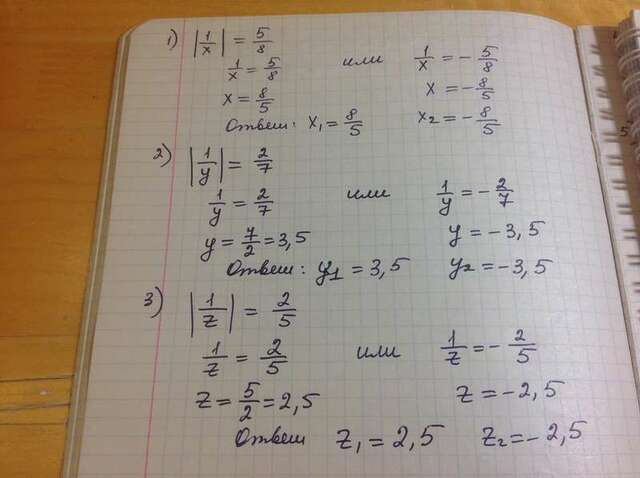 1) |1/x| = 5/8
1/x = 5/8 или 1/x = - 5/8
x = 8/5 x = - 8/5
Ответ: x₁ = 8/5 x₂ = - 8/5
2) |1/y| = 2/7
1/y = 2/7 или 1/y = - 2/7
y = 7/2 = 3,5 y = - 3,5
Ответ: y₁ = 3,5 y₂ = - 3,5
3) |1/z| = 2/5
1/z = 2/5 или 1/z = - 2/5
z = 5/2 = 2,5 z = - 2,5
Ответ z₁ = 2,5 z₂ = - 2,5